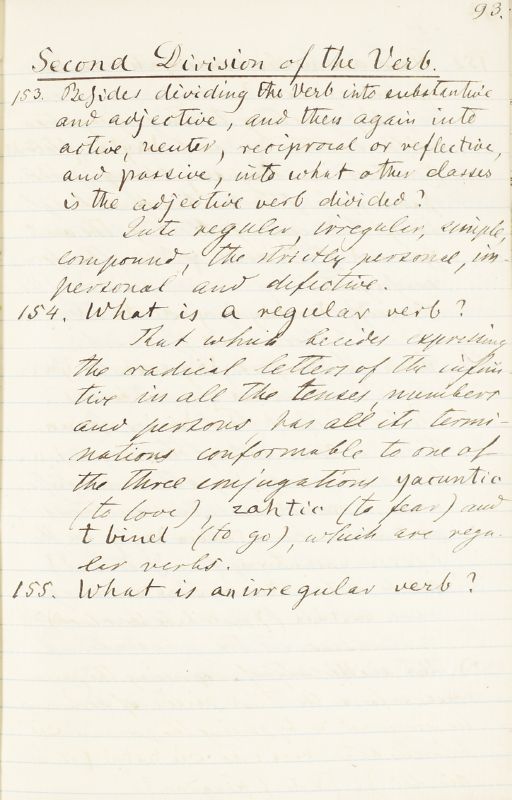 93.
Second Division of the Verb.
153. Besides dividing the verb into substantive
and adjective, and then again into
active, neuter, reciprocal or reflective,
and passive, into what other classes
is the adjective verb divided?
Into regular, irregular, simple,
compound, the strictly personal, im-
personal and defective.
154. What is a regular verb?
That which besides expressing
the radical letters of the infini-
tive in all the tenses, numbers
and persons, has all its termi-
nations conformable to one of
the three conjugations yacuntic
(to love), zahtic (to fear) and
t binel (to go), which are regu-
lar verbs.
155. What is an irregular verb?